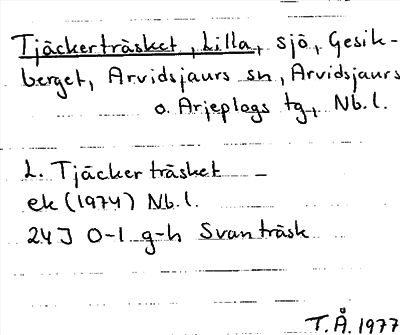 Tjäckerträsket, Lilla, sjö, Gesik-
berget, Arvidsjaurs sn, Arvidsjaurs
o. Arjeplogs tg, Nb.l.
L. Tjäckerträsket –
ek (1974) Nb.l.
24J 0-1 g-h Svanträsk
T.Å. 1977